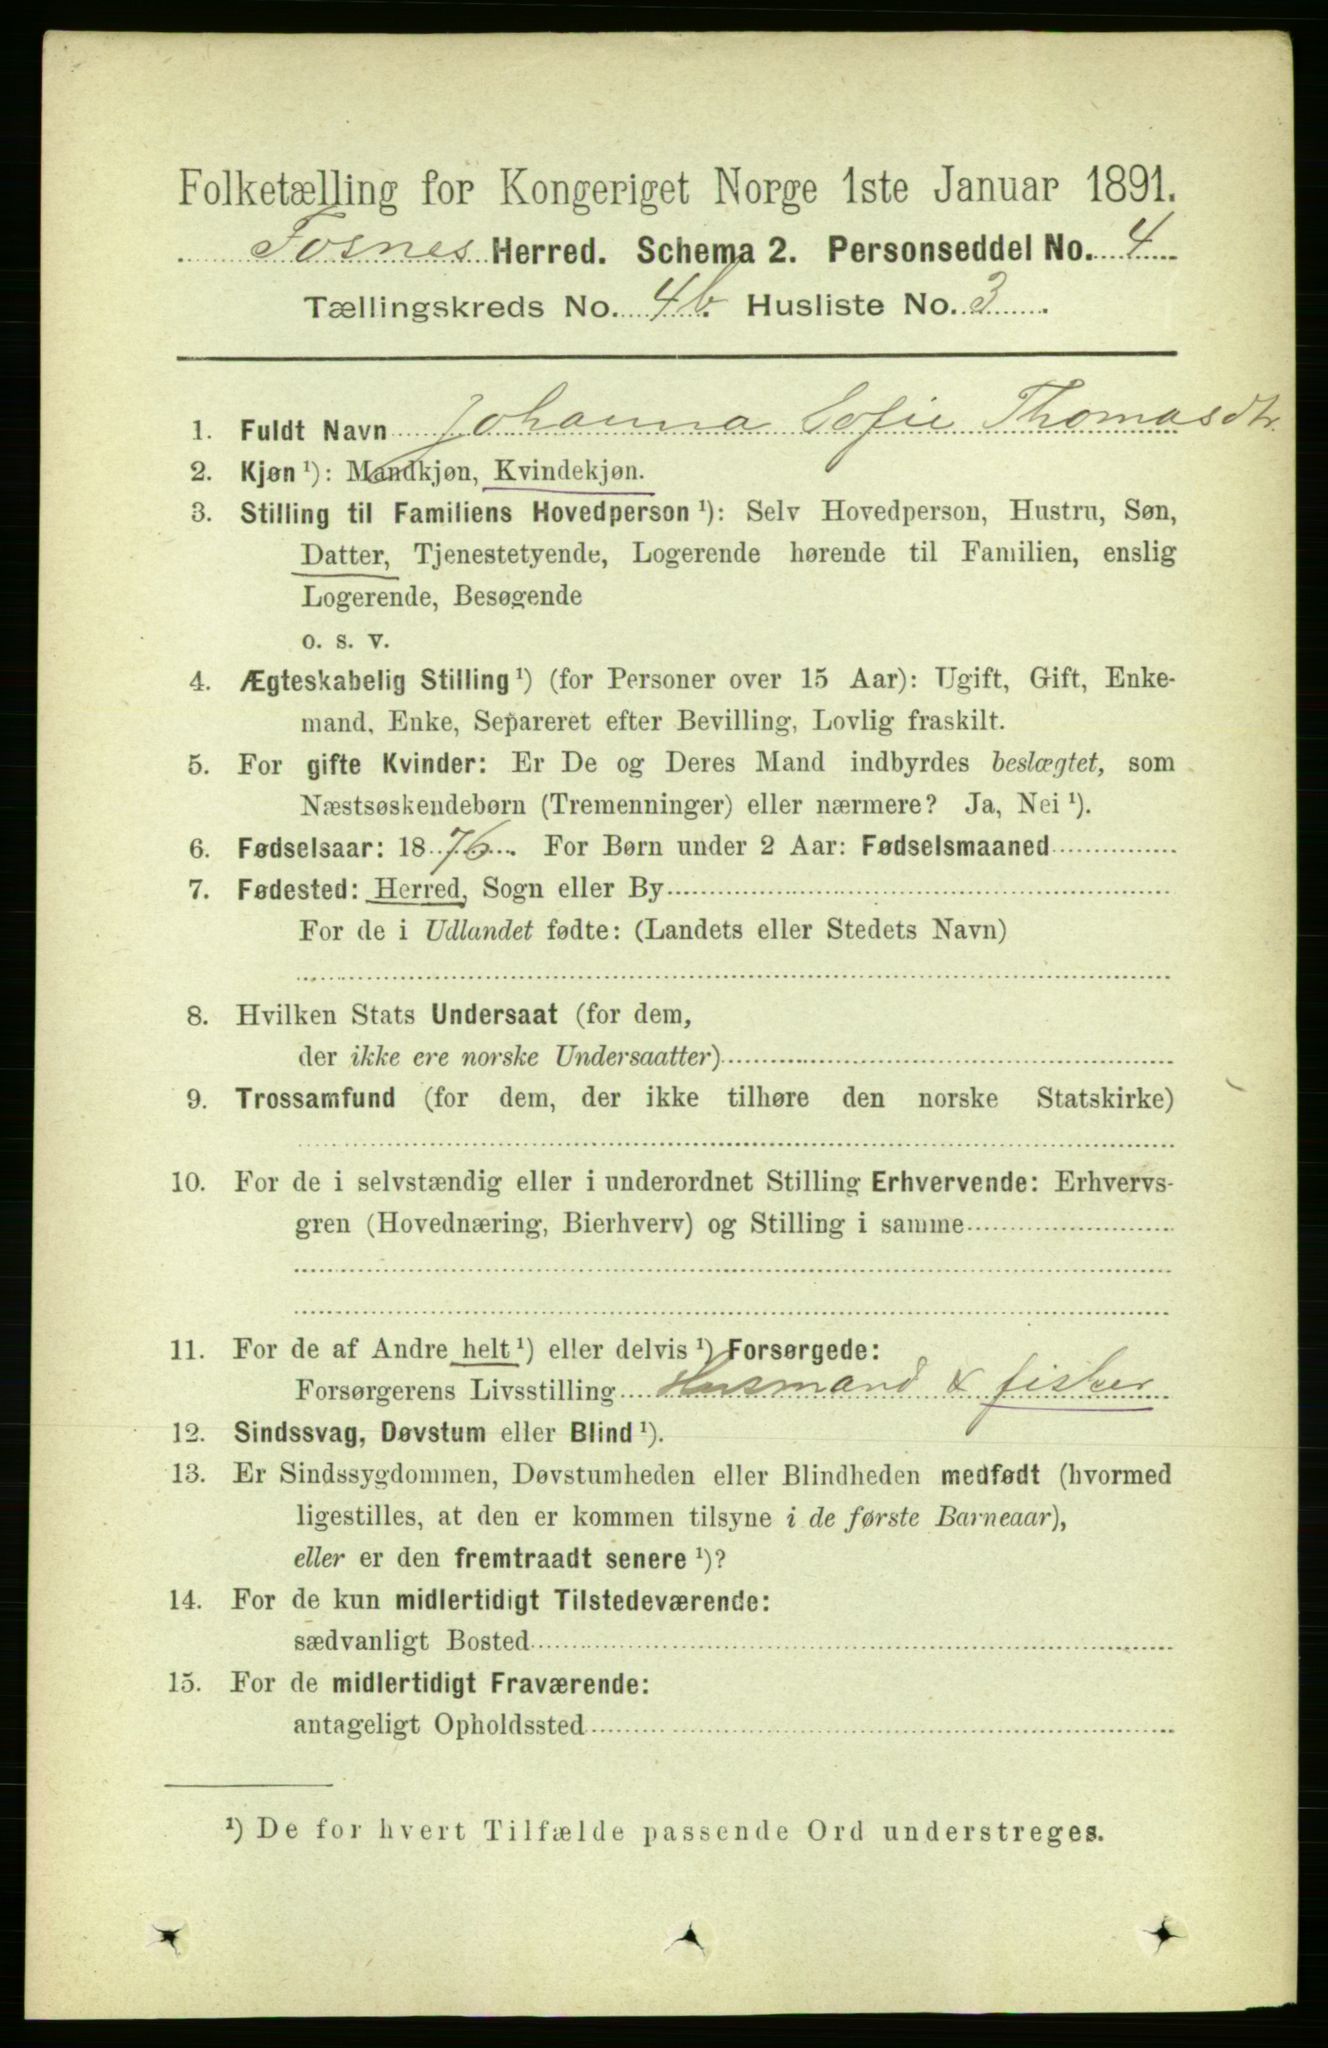 Folketælling for Kongeriget Norge 1ste Januar 1891.
Fosnes Herred. Schema 2. Personseddel No. 4
Tællingskreds No. 4b. Husliste No. 3.
1. Fuldt Navn Johanna Sofie Thomasdtr.
2. Kjøn ¹): Mandkjøn, Kvindekjøn.
3. Stilling til Familiens Hovedperson ¹): Selv Hovedperson, Hustru, Søn,
Datter, Tjenestetyende, Logerende hørende til Familien, enslig
Logerende, Besøgende
o. s. v.
4. Ægteskabelig Stilling ¹) (for Personer over 15 Aar): Ugift, Gift, Enke-
mand, Enke, Separeret efter Bevilling, Lovlig fraskilt.
5. For gifte Kvinder: Er De og Deres Mand indbyrdes beslægtet, som
Næstsøskendebørn (Tremenninger) eller nærmere? Ja, Nei ¹).
6. Fødselsaar: 1876. For Børn under 2 Aar: Fødselsmaaned
7. Fødested: Herred, Sogn eller By
For de i Udlandet fødte: (Landets eller Stedets Navn)
8. Hvilken Stats Undersaat (for dem,
der ikke ere norske Undersaatter)
9. Trossamfund (for dem, der ikke tilhøre den norske Statskirke)
10. For de i selvstændig eller i underordnet Stilling Erhvervende: Erhvervs-
gren (Hovednæring, Bierhverv) og Stilling i samme
11. For de af Andre helt ¹) eller delvis ¹) Forsørgede:
Forsørgerens Livsstilling Husmand & fisker
12. Sindssvag, Døvstum eller Blind ¹).
13. Er Sindssygdommen, Døvstumheden eller Blindheden medfødt (hvormed
ligestilles, at den er kommen tilsyne i de første Barneaar),
eller er den fremtraadt senere ¹)?
14. For de kun midlertidigt Tilstedeværende:
sædvanligt Bosted
15. For de midlertidigt Fraværende:
antageligt Opholdssted
¹) De for hvert Tilfælde passende Ord understreges.